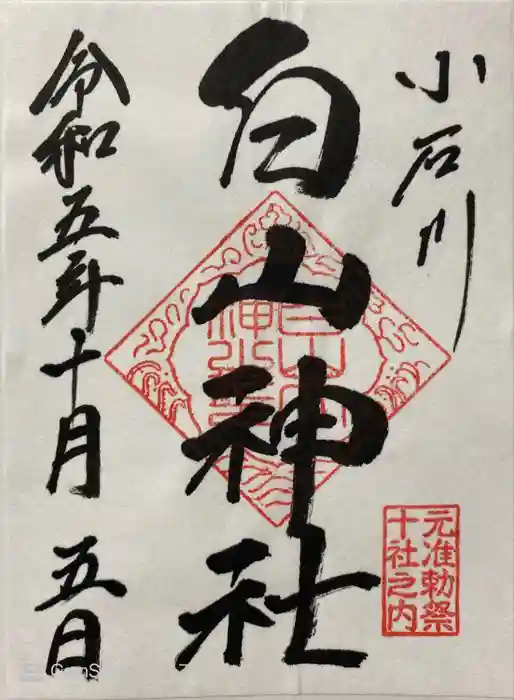 小石川
元准勅祭
十社之内
白山神社
令和五年十月五日
CamS